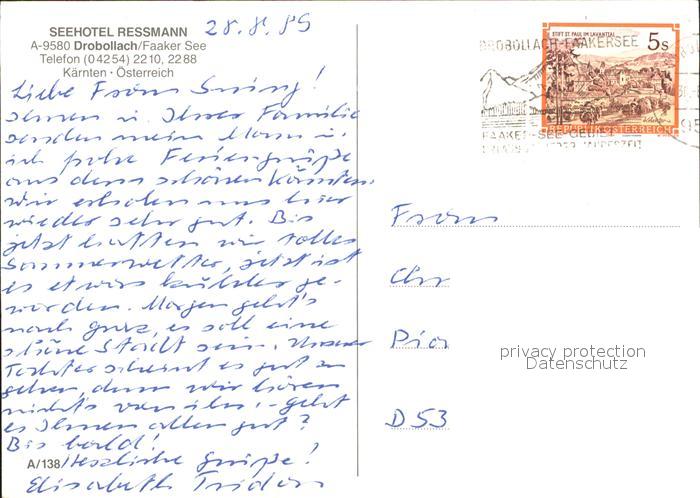 SEEHOTEL RESSMANN
A-9580 Drobollach/Faaker See
Telefon (04254) 2210, 2288
Kärnten · Österreich
28. 8. 89
Liebe Frau!
Ihnen u. Ihrer Familie
senden mein Mann u.
ich frohe Feriengrüße
aus dem schönen Kärnten.
Wir erholen uns hier
wieder sehr gut. Bis
jetzt hatten wir tolles
Sommerwetter, jetzt ist
es etwas kühler ge-
worden. Morgen geht's
nach Graz, es soll eine
schöne Stadt sein. Unserer
Tochter scheint es gut zu
gehen, denn wir hören
nichts von ihr. - Geht
es Ihnen allen gut?
Bis bald!
A/138/ Herzliche Grüße!
Elisabeth
DROBOLLACH-FAAKERSEE
FAAKER-SEE-GEBIET
STIFT ST. PAUL IM LAVANTTAL
5s
REPUBLIK ÖSTERREICH
Frau
Chr
D 53
privacy protection
Datenschutz